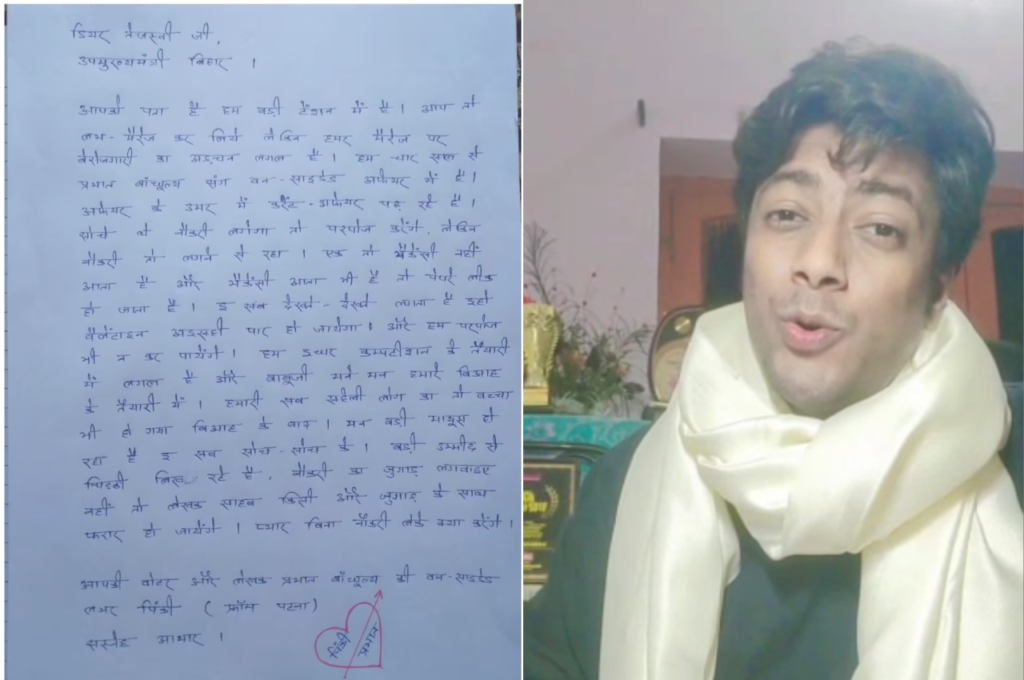 डियर तेजस्वी जी,
उपमुख्यमंत्री बिहार ।
आपको पता है हम बड़ी टेंशन में है । आप तो
लभ-मैरेज कर लिये लेकिन हमर मैरेज पर
बेरोजगारी का अड़चन लगल है । हम चार साल से
प्रभात बाँधुल्य संग वन-साइडेड अफेयर में है ।
अफेयर के उमर में करेंट-अफेयर पढ़ रहे है ।
सोचे थे नौकरी लगेगा तो परपोज करेंगे, लेकिन
नौकरी तो लगने से रहा । एक तो भैकेंसी नहीं
आता है और भैकेंसी आता भी है तो पेपरे लीक
हो जाता है । इ सब देखते-देखते लगता है इहो
वैलेंटाइन अइसही पार हो जायेगा । और हम परपोज
भी न कर पायेंगे । हम इधर कम्पटीशन के तैयारी
में लगल है और बाबूजी मने मन हमारे बिआह
के तैयारी में । हमारी सब सहेली लोग का तो बच्चा
भी हो गया बिआह के बाद । मन बड़ी मायूस हो
रहा है इ सब सोच-सोच के । बड़ी उम्मीद से
चिट्ठी लिख रहे है, नौकरी का जुगाड़ लगवाइए
नहीं तो लेखक साहब किसी और जुगाड़ के साथ
फरार हो जायेंगे । प्यार बिना नौकरी लेके क्या करेंगे ।
आपकी वोटर और लेखक प्रभात बाँधुल्य की वन-साइडेड
लभर पिंकी ( फ्रॉम पटना)
सस्नेह आभार ।
पिंकी प्रभात